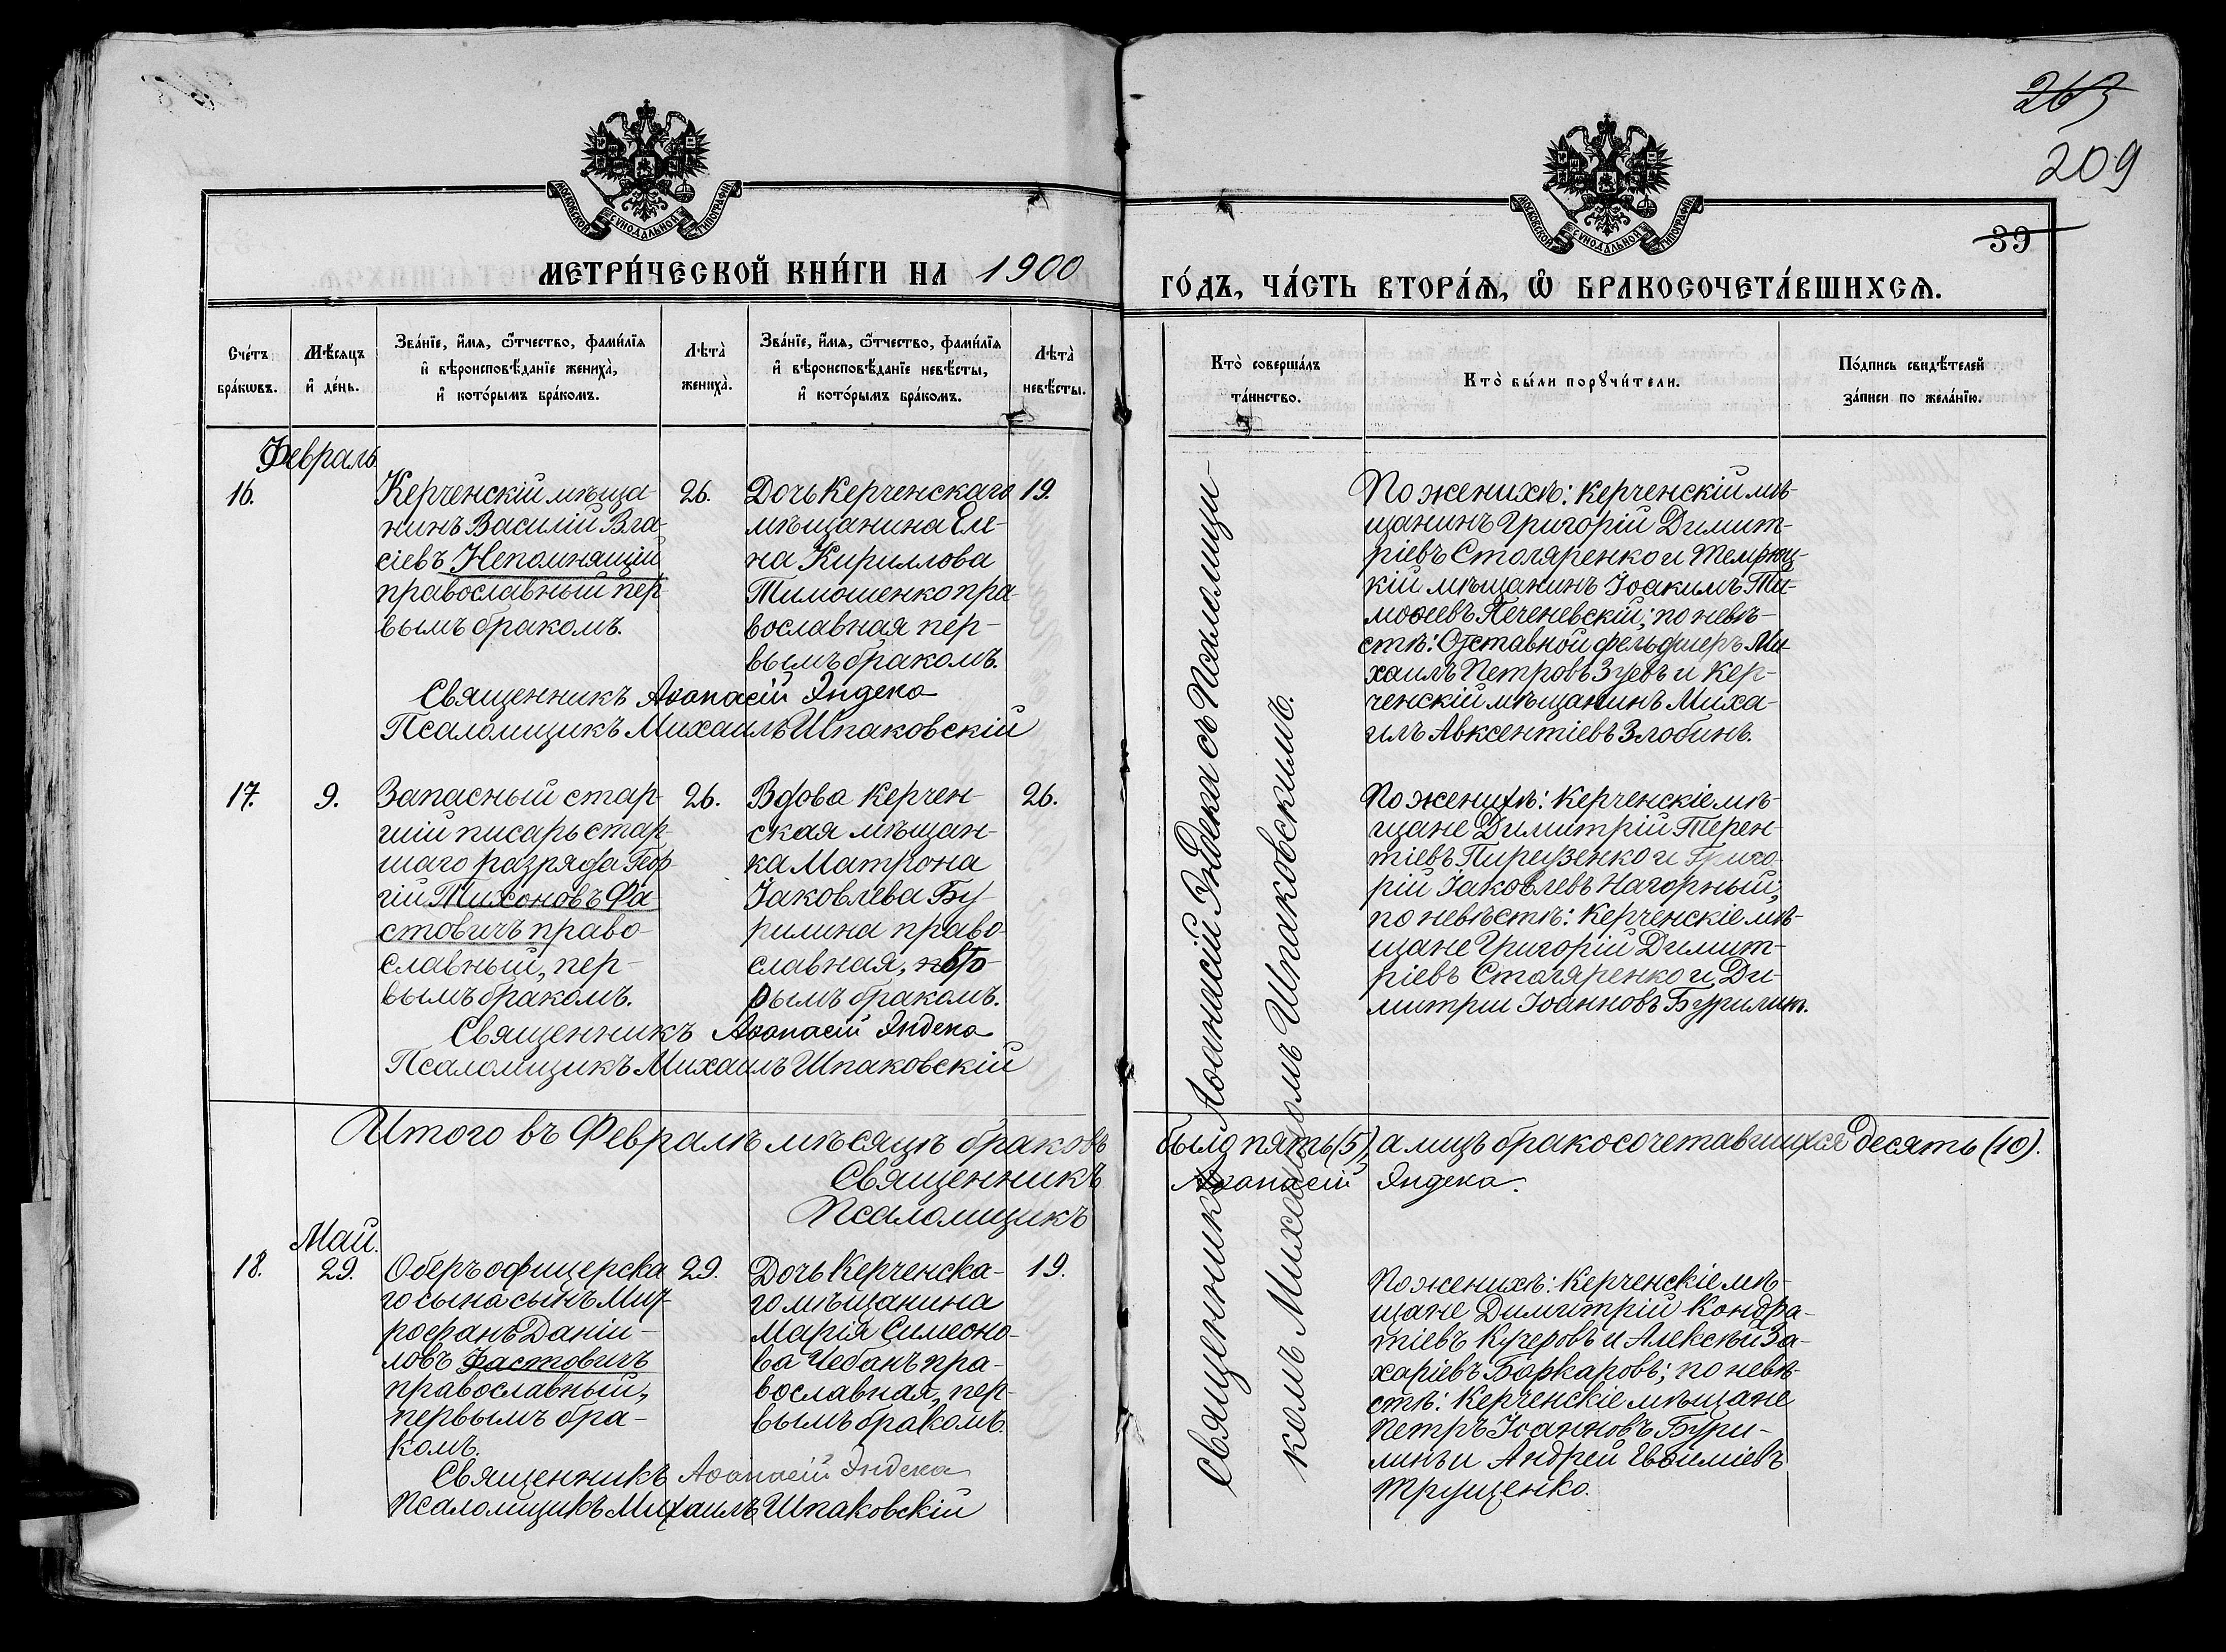 263
209
39
МОСКОВСКОЙ СѴНОДАЛЬНОЙ ТИПОГРАФІИ
МОСКОВСКОЙ СѴНОДАЛЬНОЙ ТИПОГРАФІИ
МЕТРИ́ЧЕСКОЙ КНИ́ГИ НА 1900
ГО́ДЪ, ЧА́СТЬ ВТОРА́Ѧ, Ѽ БРАКОСОЧЕТА́ВШИХСѦ.
Сче́тъ
бра́кѡвъ.
Мѣ́сяцъ
и҆ де́нь.
Зва́нїе, и҆́мя, ѻ҆́тчество, фами́лїя
и҆ вѣроисповѣ́данїе жениха̀,
и҆ кото́рымъ бра́комъ.
Лѣта̀
жениха̀.
Зва́нїе, и҆́мя, ѻ҆́тчество, фами́лїя
и҆ вѣроисповѣ́данїе невѣ́сты,
и҆ кото́рымъ бра́комъ.
Лѣта̀
невѣ́сты.
Кто̀ соверша́лъ
та́инство.
Кто̀ бы́ли порꙋчи́тели.
По́дпись свидѣ́телей
за́писи по жела́нїю.
Февраль
16.
Керченскій мѣща-
нинъ Василій Вла-
сіевъ Непомнящій
православный пер
вымъ бракомъ.
26.
Дочь Керченскаго
мѣщанина Еле-
на Кириллова
Тимошенко пра-
вославная пер-
вымъ бракомъ.
19.
Священникъ Аѳанасій Эндека
Псаломщикъ Михаилъ Шпаковскій
По женихѣ: Керченскій мѣ-
щанинъ Григорій Димит-
ріевъ Столяренко и Темрюц-
кій мѣщанинъ Іоакимъ Ти-
моѳеевъ Печеневскій; по невѣ-
стѣ: Отставной фельдшеръ Ми-
хаилъ Петровъ Зуевъ и Кер-
ченскій мѣщанинъ Миха-
илъ Авксентіевъ Злобинъ.
17.
9.
Запасный стар-
шій писарь стар-
шаго разряда Геор-
гій Тихоновъ Фа-
стовичъ право-
славный, пер-
вымъ бракомъ.
26.
Вдова Керчен-
ская мѣщан-
ка Матрона
Іаковлева Бу-
рилина право-
славная, вто-
рымъ бракомъ.
26.
Священникъ Аѳанасій Эндека
Псаломщикъ Михаилъ Шпаковскій
По женихѣ: Керченскіе мѣ-
щане Димитрій Терен-
тіевъ Пирузенко и Григо-
рій Іаковлевъ Нагорный;
по невѣстѣ: Керченскіе мѣ-
щане Григорій Димит-
ріевъ Столяренко и Ди-
митрій Іоанновъ Бурилинъ.
Итого въ Февралѣ мѣсяцѣ браковъ
было пять (5), а лицъ бракосочетавшихся десять (10).
Священникъ Аѳанасій Эндека.
Псаломщикъ
Май.
18.
29.
Оберъ офицерска
го сына сынъ Мит-
рофанъ Даніи-
ловъ Фастовичъ
православный,
первымъ бра-
комъ.
29.
Дочь Керченска-
го мѣщанина
Марія Симеоно-
ва Чебанъ пра-
вославная, пер-
вымъ бракомъ.
19.
Священникъ Аѳанасій Эндека
Псаломщикъ Михаилъ Шпаковскій
По женихѣ: Керченскіе мѣ-
щане Димитрій Кондра-
тіевъ Кучеровъ и Алексѣй За-
харіевъ Баркаровъ; по невѣ-
стѣ: Керченскіе мѣщане
Петръ Іоанновъ Бури-
линъ и Андрей Евѳиміевъ
Трущенко.
Священникъ Аѳанасій Эндека съ Псаломщи-
комъ Михаиломъ Шпаковскимъ.